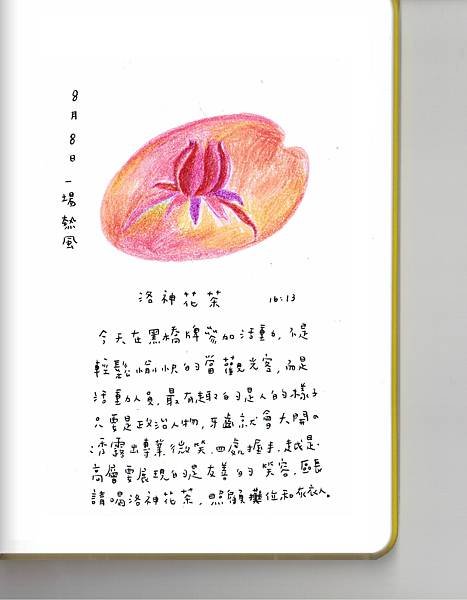 8月8日一場熱風
洛神花茶 16:13
今天在黑橋牌參加活動,不是
輕鬆愉快的當觀光客,而是
活動人員,最有趣的是人的樣子
只要是政治人物,牙齒就會大開的
透露出專業微笑,四處握手,越是
高層要展現的是友善的笑容,區長
請喝洛神花茶,照顧攤位和灰衣人。